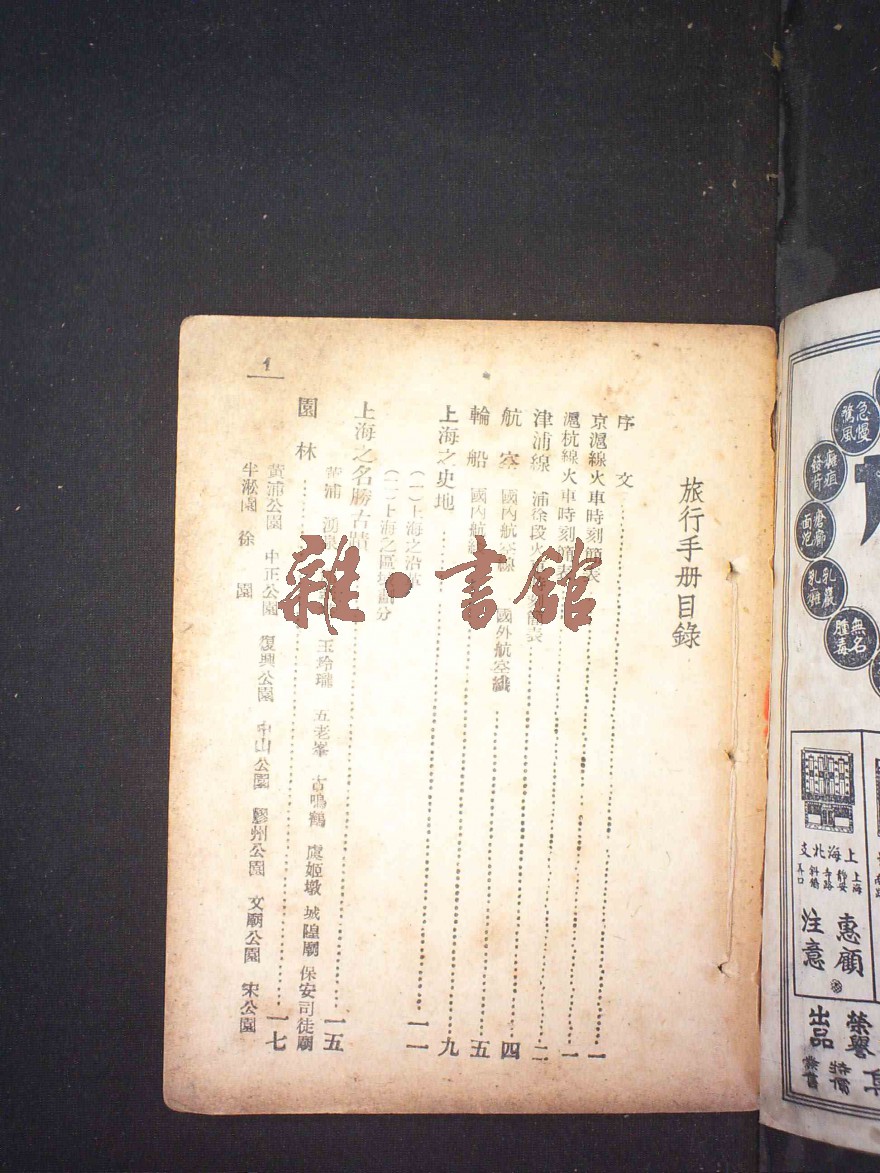 旅行手册目錄
序文 一
京滬線火車時刻簡表 一
滬杭線火車時刻簡表 二
津浦線 浦徐段火車時刻簡表
航空 國內航空線 國外航空線 四
輪船 國內航線 五
上海之史地 九
(一)上海之沿革
(二)上海之區域劃分 一一
上海之名勝古蹟 一五
黃浦 湧泉 玉玲瓏 五老峯 古鳴鶴 虞姬墩 城隍廟 保安司徒廟
園林 一七
黃浦公園 中正公園 復興公園 中山公園 膠州公園 文廟公園 宋公園
半淞園 徐園
1
雜·書館
急慢驚風
癰疽發背
瘡癤面泡
乳巖乳癰
無名腫毒
上海北支
上海靜安寺路斜橋弄口
惠顧注意
榮譽出品